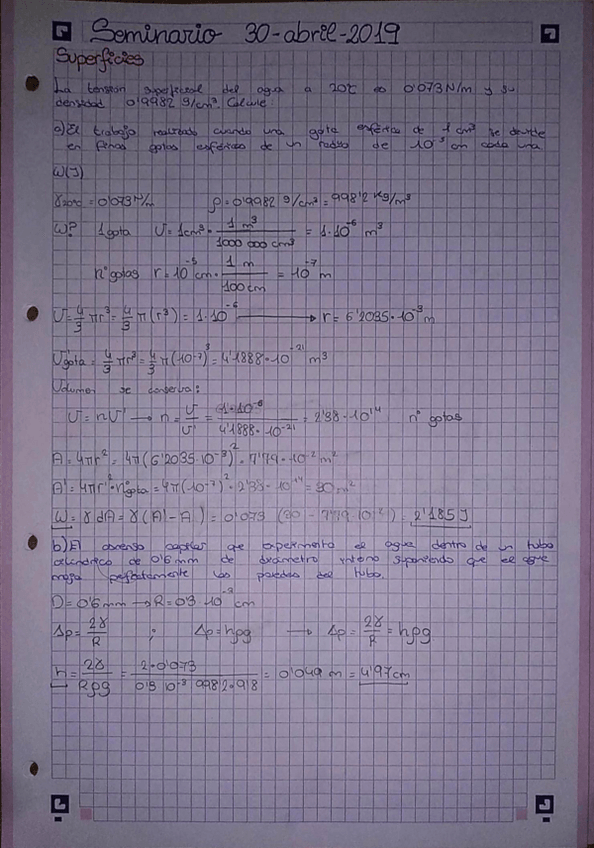 Seminario 30-abril-2019
Superficies
La tensión superficial del agua a 20ºC es 0'073N/m y su
densidad 0'9982 g/cm³. Calcule:
a) El trabajo realizado cuando una gota esférica de 1 cm³ se divide
en finas gotas esféricas de un radio de 10⁻⁵ cm cada una.
W(J)
γ20ºC = 0'073 N/m ρ = 0'9982 g/cm³ = 998'2 Kg/m³
W? 1 gota V = 1cm³ · 1 m³ / 1000 000 cm³ = 1·10⁻⁶ m³
nº gotas r = 10⁻⁵ cm · 1 m / 100 cm = 10⁻⁷ m
V = 4/3 πr³ = 4/3 π (r³) = 1·10⁻⁶ → r = 6'2035·10⁻³ m
V'gota = 4/3 πr³ = 4/3 π (10⁻⁷)³ = 4'1888·10⁻²¹ m³
Volumen se conserva:
V = nV' → n = V/V' = 1·10⁻⁶ / 4'1888·10⁻²¹ = 2'38·10¹⁴ nº gotas
A = 4πr² = 4π (6'2035·10⁻³)² = 7'79·10⁻² m²
A' = 4πr'²·nºgota = 4π (10⁻⁷)² · 2'38·10⁻¹⁴ = 30 m²
W = γ dA = γ (A' - A) = 0'073 (30 - 7'79·10⁻²) = 2'185 J
b) El ascenso capilar que experimenta el agua dentro de un tubo
cilíndrico de 0'6 mm de diámetro interno suponiendo que el agua
moja perfectamente las paredes del tubo.
D = 0'6 mm → R = 0'3·10⁻³ cm
Δp = 2γ/R ; Δp = hρg → Δp = 2γ/R = hρg
h = 2γ/Rρg = 2·0'073 / 0'3 10⁻³ 998'2·9'8 = 0'049 m = 4'97cm